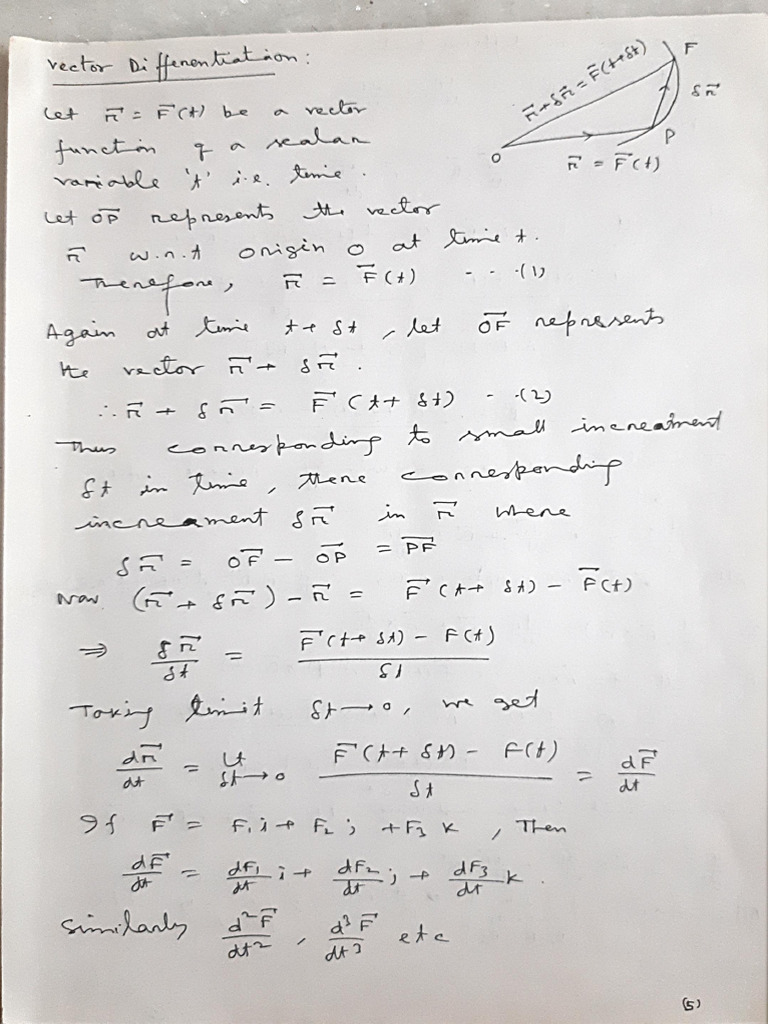 Vector Differentiation:
r⃗ + δr⃗ = F⃗(t+δt)
F
δr⃗
P
O
r⃗ = F⃗(t)
Let r⃗ = F⃗(t) be a vector
function of a scalar
variable 't' i.e. time.
Let O̅P̅ represents the vector
r⃗ w.r.t origin O at time t.
Therefore, r⃗ = F⃗(t) - - -(1)
Again at time t+δt, let O̅F̅ represents
the vector r⃗ + δr⃗.
∴ r⃗ + δr⃗ = F⃗(t+δt) - -(2)
Thus corresponding to small increatment
δt in time, there corresponding
increament δr⃗ in r⃗ where
δr⃗ = O̅F̅ - O̅P̅ = P̅F̅
Now (r⃗ + δr⃗) - r⃗ = F⃗(t+δt) - F⃗(t)
⇒ δr⃗/δt = (F⃗(t+δt) - F(t))/δt
Taking limit δt→0, we get
dr⃗/dt = Lt δt→0 (F⃗(t+δt) - F(t))/δt = dF⃗/dt
If F⃗ = F₁i + F₂j + F₃k, Then
dF⃗/dt = dF₁/dt i + dF₂/dt j + dF₃/dt k.
Similarly d²F⃗/dt², d³F⃗/dt³ etc
(5)